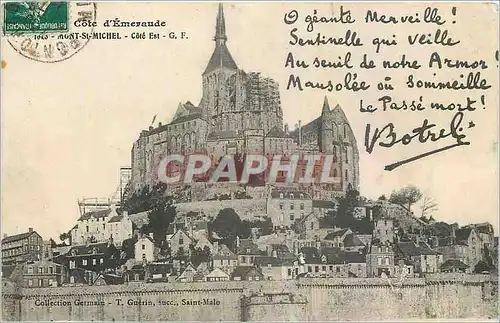 Côte d'Emeraude
1043 - MONT-St-MICHEL - Côté Est - G. F.
O géante Merveille !
Sentinelle qui veille
Au seuil de notre Armor !
Mausolée où Sommeille
Le Passé mort !
Botrel
CPARAMA
Collection Germain - T. Guérin, succ., Saint-Malo